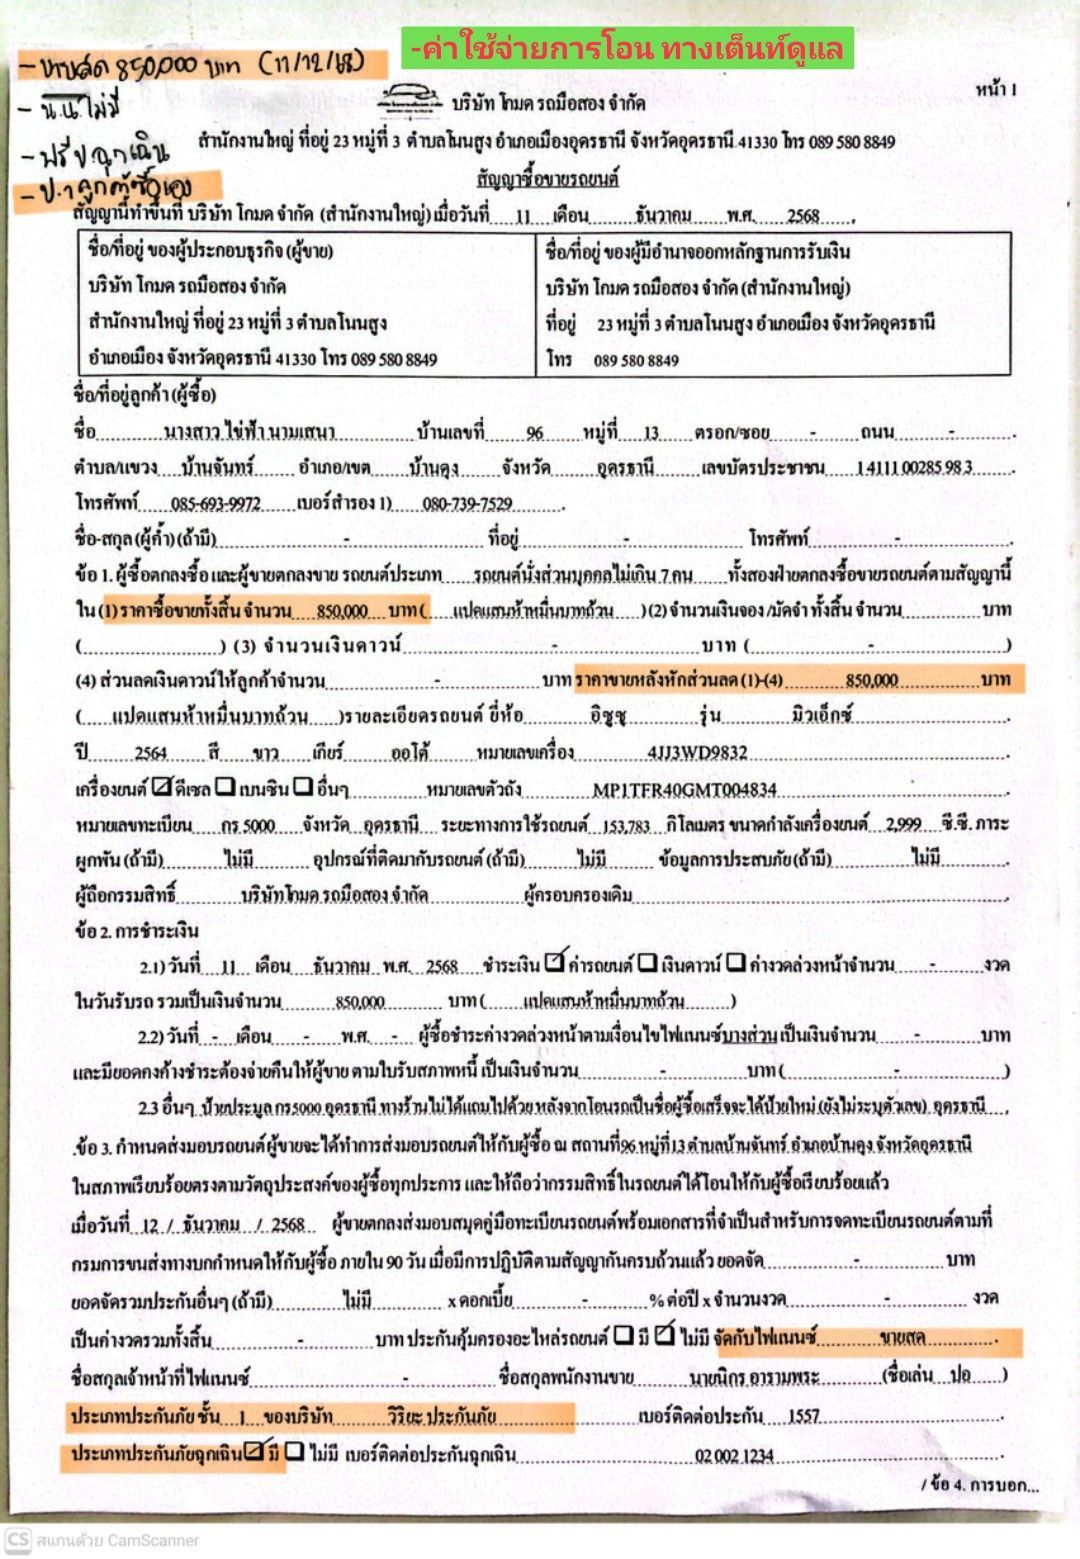 -ค่าใช้จ่ายการโอน ทางเต็นท์ดูแล
- ขายสด 850,000 บาท (11/12/68)
- น.น. ไม่มี
- ฟรี ป.ฉุกเฉิน
- ป.1 ลูกค้าซื้อเอง
หน้า 1
บริษัท โกมด รถมือสอง จำกัด
สำนักงานใหญ่ ที่อยู่ 23 หมู่ที่ 3 ตำบลโนนสูง อำเภอเมืองอุดรธานี จังหวัดอุดรธานี 41330 โทร 089 580 8849
สัญญาซื้อขายรถยนต์
สัญญานี้ทำขึ้นที่ บริษัท โกมด จำกัด (สำนักงานใหญ่) เมื่อวันที่ 11 เดือน ธันวาคม พ.ศ. 2568
ชื่อ/ที่อยู่ ของผู้ประกอบธุรกิจ (ผู้ขาย)
บริษัท โกมด รถมือสอง จำกัด
สำนักงานใหญ่ ที่อยู่ 23 หมู่ที่ 3 ตำบลโนนสูง
อำเภอเมือง จังหวัดอุดรธานี 41330 โทร 089 580 8849
ชื่อ/ที่อยู่ ของผู้มีอำนาจออกหลักฐานการรับเงิน
บริษัท โกมด รถมือสอง จำกัด (สำนักงานใหญ่)
ที่อยู่ 23 หมู่ที่ 3 ตำบลโนนสูง อำเภอเมือง จังหวัดอุดรธานี
โทร 089 580 8849
ชื่อ/ที่อยู่ลูกค้า (ผู้ซื้อ)
ชื่อ นางสาว ไข่ฟ้า นามเสนา บ้านเลขที่ 96 หมู่ที่ 13 ตรอก/ซอย - ถนน -
ตำบล/แขวง บ้านจันทร์ อำเภอ/เขต บ้านดุง จังหวัด อุดรธานี เลขบัตรประชาชน 1 4111 00285 98 3
โทรศัพท์ 085-693-9972 เบอร์สำรอง 1) 080-739-7529
ชื่อ-สกุล (ผู้ค้ำ) (ถ้ามี) - ที่อยู่ - โทรศัพท์ -
ข้อ 1. ผู้ซื้อตกลงซื้อ และผู้ขายตกลงขาย รถยนต์ประเภท รถยนต์นั่งส่วนบุคคลไม่เกิน 7 คน ทั้งสองฝ่ายตกลงซื้อขายรถยนต์ตามสัญญานี้
ใน (1) ราคาซื้อขายทั้งสิ้น จำนวน 850,000 บาท ( แปดแสนห้าหมื่นบาทถ้วน ) (2) จำนวนเงินจอง/มัดจำ ทั้งสิ้น จำนวน บาท
( ) (3) จำนวนเงินดาวน์ - บาท ( - )
(4) ส่วนลดเงินดาวน์ให้ลูกค้าจำนวน - บาท ราคาขายหลังหักส่วนลด (1)-(4) 850,000 บาท
( แปดแสนห้าหมื่นบาทถ้วน ) รายละเอียดรถยนต์ ยี่ห้อ อีซูซุ รุ่น มิวเอ็กซ์
ปี 2564 สี ขาว เกียร์ ออโต้ หมายเลขเครื่อง 4JJ3WD9832
เครื่องยนต์ ☑ ดีเซล ☐ เบนซิน ☐ อื่นๆ หมายเลขตัวถัง MP1TFR40GMT004834
หมายเลขทะเบียน กร 5000 จังหวัด อุดรธานี ระยะทางการใช้รถยนต์ 153,783 กิโลเมตร ขนาดกำลังเครื่องยนต์ 2,999 ซี.ซี. ภาระ
ผูกพัน (ถ้ามี) ไม่มี อุปกรณ์ที่ติดมากับรถยนต์ (ถ้ามี) ไม่มี ข้อมูลการประสบภัย (ถ้ามี) ไม่มี
ผู้ถือกรรมสิทธิ์ บริษัท โกมด รถมือสอง จำกัด ผู้ครอบครองเดิม
ข้อ 2. การชำระเงิน
2.1) วันที่ 11 เดือน ธันวาคม พ.ศ. 2568 ชำระเงิน ☑ ค่ารถยนต์ ☐ เงินดาวน์ ☐ ค่างวดล่วงหน้าจำนวน - งวด
ในวันรับรถ รวมเป็นเงินจำนวน 850,000 บาท ( แปดแสนห้าหมื่นบาทถ้วน )
2.2) วันที่ - เดือน - พ.ศ. - ผู้ซื้อชำระค่างวดล่วงหน้าตามเงื่อนไขไฟแนนซ์บางส่วน เป็นเงินจำนวน - บาท
และมียอดคงค้างชำระต้องจ่ายคืนให้ผู้ขาย ตามใบรับสภาพหนี้ เป็นเงินจำนวน - บาท ( - )
2.3 อื่นๆ ป้ายประมูล กร5000 อุดรธานี ทางร้านไม่ได้แถมไปด้วย หลังจากโอนรถเป็นชื่อผู้ซื้อเสร็จจะได้ป้ายใหม่ (ยังไม่ระบุตัวเลข) อุดรธานี
.ข้อ 3. กำหนดส่งมอบรถยนต์ผู้ขายจะได้ทำการส่งมอบรถยนต์ให้กับผู้ซื้อ ณ สถานที่96 หมู่ที่13 ตำบลบ้านจันทร์ อำเภอบ้านดุง จังหวัดอุดรธานี
ในสภาพเรียบร้อยตรงตามวัตถุประสงค์ของผู้ซื้อทุกประการ และให้ถือว่ากรรมสิทธิ์ในรถยนต์ได้โอนให้กับผู้ซื้อเรียบร้อยแล้ว
เมื่อวันที่ 12 / ธันวาคม / 2568 ผู้ขายตกลงส่งมอบสมุดคู่มือทะเบียนรถยนต์พร้อมเอกสารที่จำเป็นสำหรับการจดทะเบียนรถยนต์ตามที่
กรมการขนส่งทางบกกำหนดให้กับผู้ซื้อ ภายใน 90 วัน เมื่อมีการปฏิบัติตามสัญญากันครบถ้วนแล้ว ยอดจัด - บาท
ยอดจัดรวมประกันอื่นๆ (ถ้ามี) ไม่มี x ดอกเบี้ย - % ต่อปี x จำนวนงวด - งวด
เป็นค่างวดรวมทั้งสิ้น - บาท ประกันคุ้มครองอะไหล่รถยนต์ ☐ มี ☑ ไม่มี จัดกับไฟแนนซ์ ขายสด
ชื่อสกุลเจ้าหน้าที่ไฟแนนซ์ - ชื่อสกุลพนักงานขาย นายนิกร อารามพระ (ชื่อเล่น ปอ )
ประเภทประกันภัย ชั้น 1 ของบริษัท วิริยะ ประกันภัย เบอร์ติดต่อประกัน 1557
ประเภทประกันภัยฉุกเฉิน ☑ มี ☐ ไม่มี เบอร์ติดต่อประกันฉุกเฉิน 02 002 1234
/ ข้อ 4. การบอก...
CS สแกนด้วย CamScanner